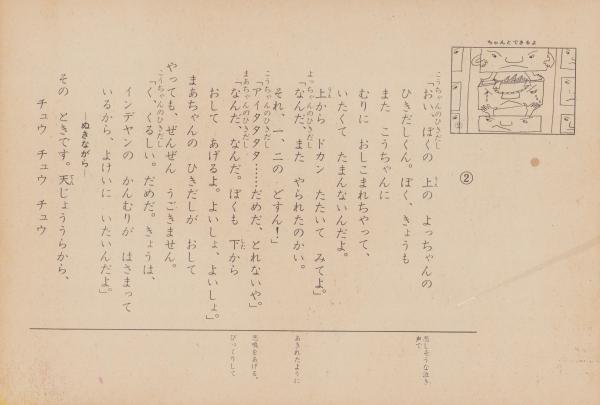 ちゃんとできるよ
②
こうちゃんのひきだし
「おい、ぼくの 上の よっちゃんの
ひきだしくん。ぼく、きょうも
また こうちゃんに
むりに おしこまれちゃって、
いたくて たまんないんだよ。
上から ドカン たたいて みてよ」
よっちゃんのひきだし
「なんだ、また やられたのかい。
それ、一、二の どすん!」
こうちゃんのひきだし
「アイタタタタ……だめだ、とれないや」
まあちゃんのひきだし
「なんだ、なんだ。ぼくも 下から
おして あげるよ。よいしょ、よいしょ」
まあちゃんの ひきだしが おして
やっても、ぜんぜん うごきません。
こうちゃんのひきだし
「く、くるしい。だめだ。きょうは、
インデヤンの かんむりが はさまって
いるから、よけいに いたいんだよ」
―ぬきながら―
その ときです。天じょううらから、
チュウ チュウ チュウ
悲しそうな泣き
声で
あきれたように
悲鳴をあげる。
びっくりして